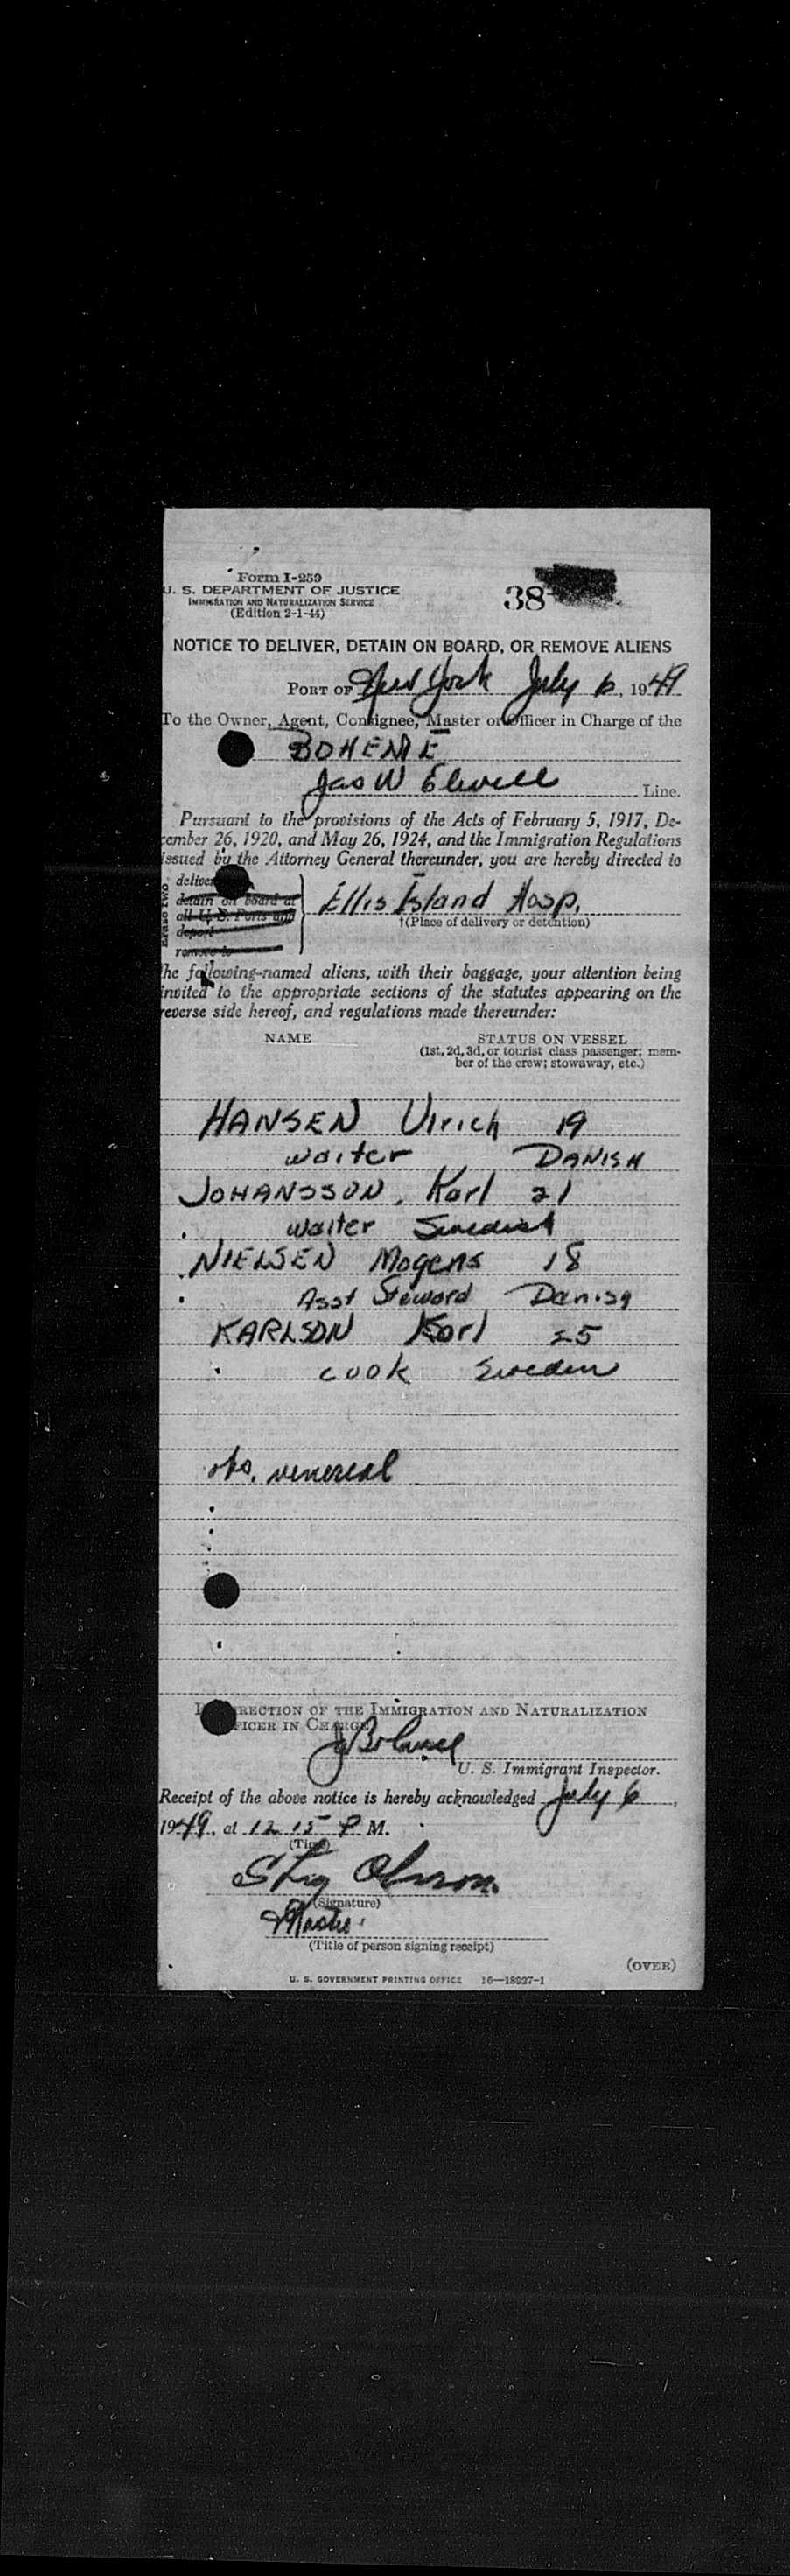 Form I-259
U. S. DEPARTMENT OF JUSTICE
IMMIGRATION AND NATURALIZATION SERVICE
(Edition 2-1-44)
38
NOTICE TO DELIVER, DETAIN ON BOARD, OR REMOVE ALIENS
PORT OF New York July 6, 1949
To the Owner, Agent, Consignee, Master or Officer in Charge of the
BOHEME
Jas W Elwell Line.
Pursuant to the provisions of the Acts of February 5, 1917, De-
cember 26, 1920, and May 26, 1924, and the Immigration Regulations
issued by the Attorney General thereunder, you are hereby directed to
deliver
detain on board at
all U. S. Ports and
deport
remove to
Ellis Island Hosp.
†(Place of delivery or detention)
he following-named aliens, with their baggage, your attention being
invited to the appropriate sections of the statutes appearing on the
reverse side hereof, and regulations made thereunder:
NAME STATUS ON VESSEL
(1st, 2d, 3d, or tourist class passenger; mem-
ber of the crew; stowaway, etc.)
HANSEN Ulrich 19
waiter DANISH
JOHANSSON, Karl 21
waiter Swedish
NIELSEN Mogens 18
Asst Steward Danish
KARLSON Karl 25
cook Sweden
obs. venereal
RECTION OF THE IMMIGRATION AND NATURALIZATION
FICER IN CHARGE
U. S. Immigrant Inspector.
Receipt of the above notice is hereby acknowledged July 6,
1949, at 12 15 P M.
(Time)
Stig Olsson.
(Signature)
Master
(Title of person signing receipt)
(OVER)
U. S. GOVERNMENT PRINTING OFFICE 16—18927-1